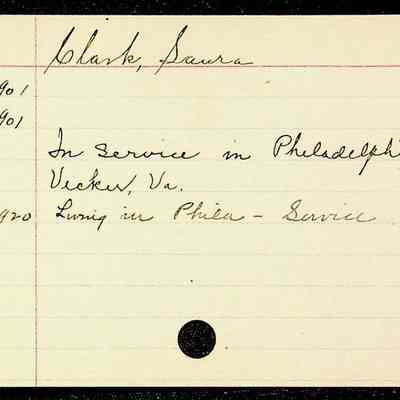 Clark, Laura
901
901
In service in Philadelph
Vecker, Va.
920 Living in Phila - Service